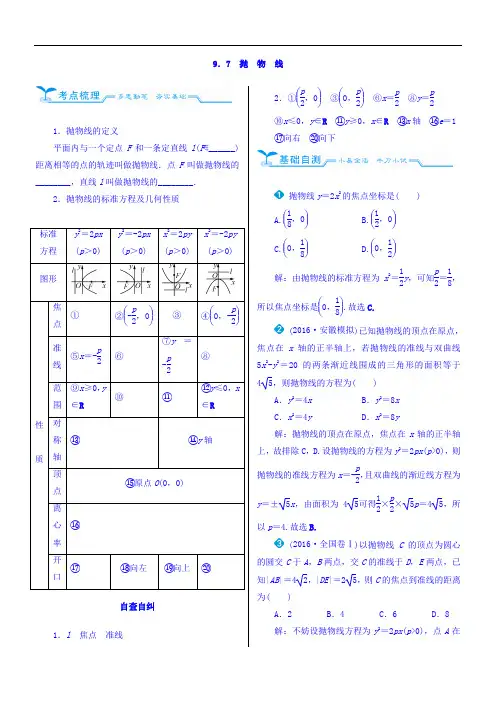 9.7 抛 物 线
考点梳理
多思勤笔 夯实基础
1.抛物线的定义
平面内与一个定点F和一条定直线l(F______)
距离相等的点的轨迹叫做抛物线.点F叫做抛物线的
________,直线l叫做抛物线的________.
2.抛物线的标准方程及几何性质
标准方程 y²=2px (p>0) y²=-2px (p>0) x²=2py (p>0) x²=-2py (p>0)
图形
性质
焦点 ① ②(-p/2, 0) ③ ④(0, -p/2)
准线 ⑤x=-p/2 ⑥ ⑦y=-p/2 ⑧
范围 ⑨x≥0,y∈R ⑩ ⑪ ⑫y≤0,x∈R
对称轴 ⑬ ⑭y轴
顶点 ⑮原点O(0,0)
离心率 ⑯
开口 ⑰ ⑱向左 ⑲向上 ⑳
自查自纠
1.l 焦点 准线
2.①(p/2, 0) ③(0, p/2) ⑥x=p/2 ⑧y=p/2
⑩x≤0,y∈R ⑪y≥0,x∈R ⑬x轴 ⑯e=1
⑰向右 ⑳向下
基础自测
1 抛物线y=2x²的焦点坐标是( )
A.(1/8, 0) B.(1/2, 0)
C.(0, 1/8) D.(0, 1/2)
解:由抛物线的标准方程为x²=1/2y,可知p/2=1/8,
所以焦点坐标是(0, 1/8).故选C.
2 (2016·安徽模拟)已知抛物线的顶点在原点,
焦点在x轴的正半轴上,若抛物线的准线与双曲线
5x²-y²=20的两条渐近线围成的三角形的面积等于
4√5,则抛物线的方程为( )
A.y²=4x B.y²=8x
C.x²=4y D.x²=8y
解:抛物线的顶点在原点,焦点在x轴的正半轴
上,故排除C,D.设抛物线的方程为y²=2px(p>0),则
抛物线的准线方程为x=-p/2,且双曲线的渐近线方程为
y=±√5x,由面积为4√5可得1/2×p/2×√5p=4√5,所
以p=4.故选B.
3 (2016·全国卷Ⅰ)以抛物线C的顶点为圆心
的圆交C于A,B两点,交C的准线于D,E两点,已
知|AB|=4√2,|DE|=2√5,则C的焦点到准线的距离
为( )
A.2 B.4 C.6 D.8
解:不妨设抛物线方程为y²=2px(p>0),点A在